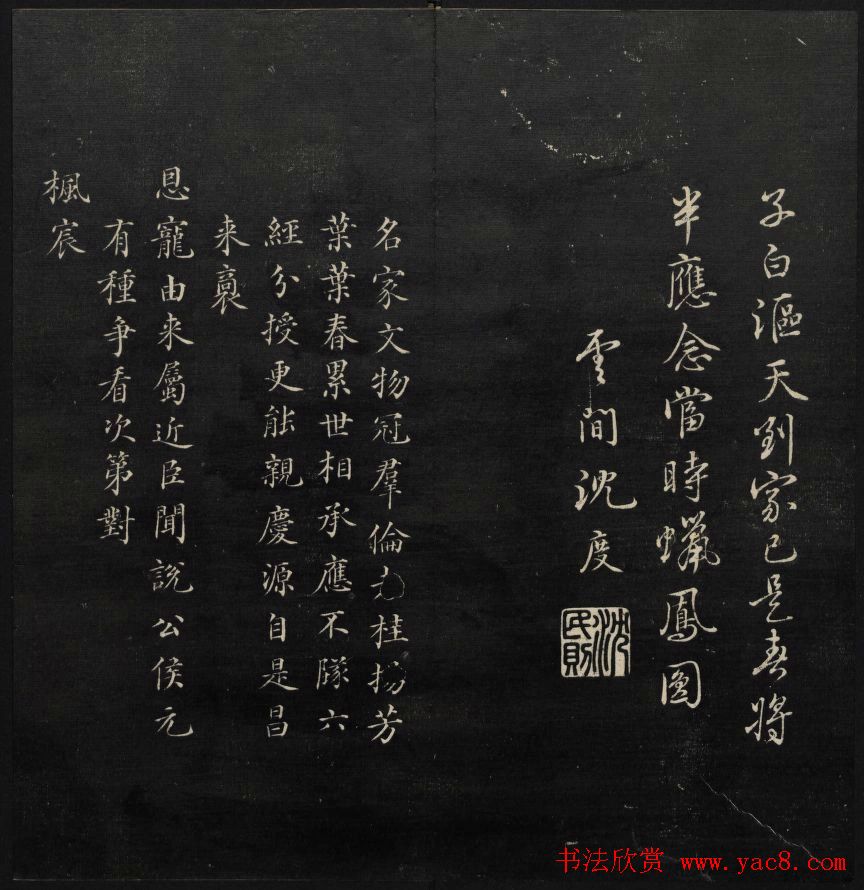 子白漚天到家已是春將
半應念當時蠟鳳圖
雲間沈度
沈氏民則
名家文物冠羣倫尤桂揚芳
葉葉春累世相承應不隊六
經分授更能親慶源自是昌
来裔
恩寵由来屬近臣聞說公侯元
有種争看次第對
楓宸
书法欣赏 www.yac8.com